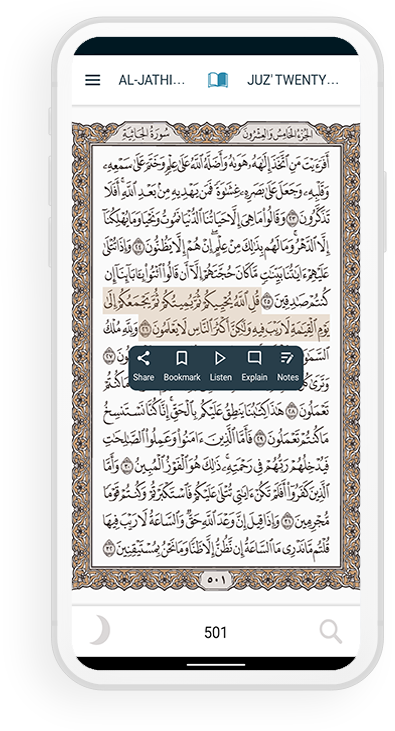 AL-JATHI...
JUZ' TWENTY...
سُورَةُ الجَاثِيَةِ
الجُزْءُ الخَامِسُ وَالعِشْرُونَ
أَفَرَءَيْتَ مَنِ ٱتَّخَذَ إِلَٰهَهُۥ هَوَىٰهُ وَأَضَلَّهُ ٱللَّهُ عَلَىٰ عِلْمٍ وَخَتَمَ عَلَىٰ سَمْعِهِۦ
وَقَلْبِهِۦ وَجَعَلَ عَلَىٰ بَصَرِهِۦ غِشَٰوَةً فَمَن يَهْدِيهِ مِنۢ بَعْدِ ٱللَّهِ أَفَلَا
تَذَكَّرُونَ ٢٣ وَقَالُوا۟ مَا هِىَ إِلَّا حَيَاتُنَا ٱلدُّنْيَا نَمُوتُ وَنَحْيَا وَمَا يُهْلِكُنَآ
إِلَّا ٱلدَّهْرُ وَمَا لَهُم بِذَٰلِكَ مِنْ عِلْمٍ إِنْ هُمْ إِلَّا يَظُنُّونَ ٢٤ وَإِذَا تُتْلَىٰ
عَلَيْهِمْ ءَايَٰتُنَا بَيِّنَٰتٍ مَّا كَانَ حُجَّتَهُمْ إِلَّآ أَن قَالُوا۟ ٱئْتُوا۟ بِـَٔابَآئِنَآ إِن
كُنتُمْ صَٰدِقِينَ ٢٥ قُلِ ٱللَّهُ يُحْيِيكُمْ ثُمَّ يُمِيتُكُمْ ثُمَّ يَجْمَعُكُمْ إِلَىٰ
يَوْمِ ٱلْقِيَٰمَةِ لَا رَيْبَ فِيهِ وَلَٰكِنَّ أَكْثَرَ ٱلنَّاسِ لَا يَعْلَمُونَ ٢٦ وَلِلَّهِ مُلْكُ
٢٧
Share Bookmark Listen Explain Notes
وَتَرَىٰ
تَعْمَلُونَ ٢٨ هَٰذَا كِتَٰبُنَا يَنطِقُ عَلَيْكُم بِٱلْحَقِّ إِنَّا كُنَّا نَسْتَنسِخُ
مَا كُنتُمْ تَعْمَلُونَ ٢٩ فَأَمَّا ٱلَّذِينَ ءَامَنُوا۟ وَعَمِلُوا۟ ٱلصَّٰلِحَٰتِ
فَيُدْخِلُهُمْ رَبُّهُمْ فِى رَحْمَتِهِۦ ذَٰلِكَ هُوَ ٱلْفَوْزُ ٱلْمُبِينُ ٣٠ وَأَمَّا
ٱلَّذِينَ كَفَرُوٓا۟ أَفَلَمْ تَكُنْ ءَايَٰتِى تُتْلَىٰ عَلَيْكُمْ فَٱسْتَكْبَرْتُمْ وَكُنتُمْ قَوْمًا
مُّجْرِمِينَ ٣١ وَإِذَا قِيلَ إِنَّ وَعْدَ ٱللَّهِ حَقٌّ وَٱلسَّاعَةُ لَا رَيْبَ فِيهَا
قُلْتُم مَّا نَدْرِى مَا ٱلسَّاعَةُ إِن نَّظُنُّ إِلَّا ظَنًّا وَمَا نَحْنُ بِمُسْتَيْقِنِينَ ٣٢
٥٠١
501